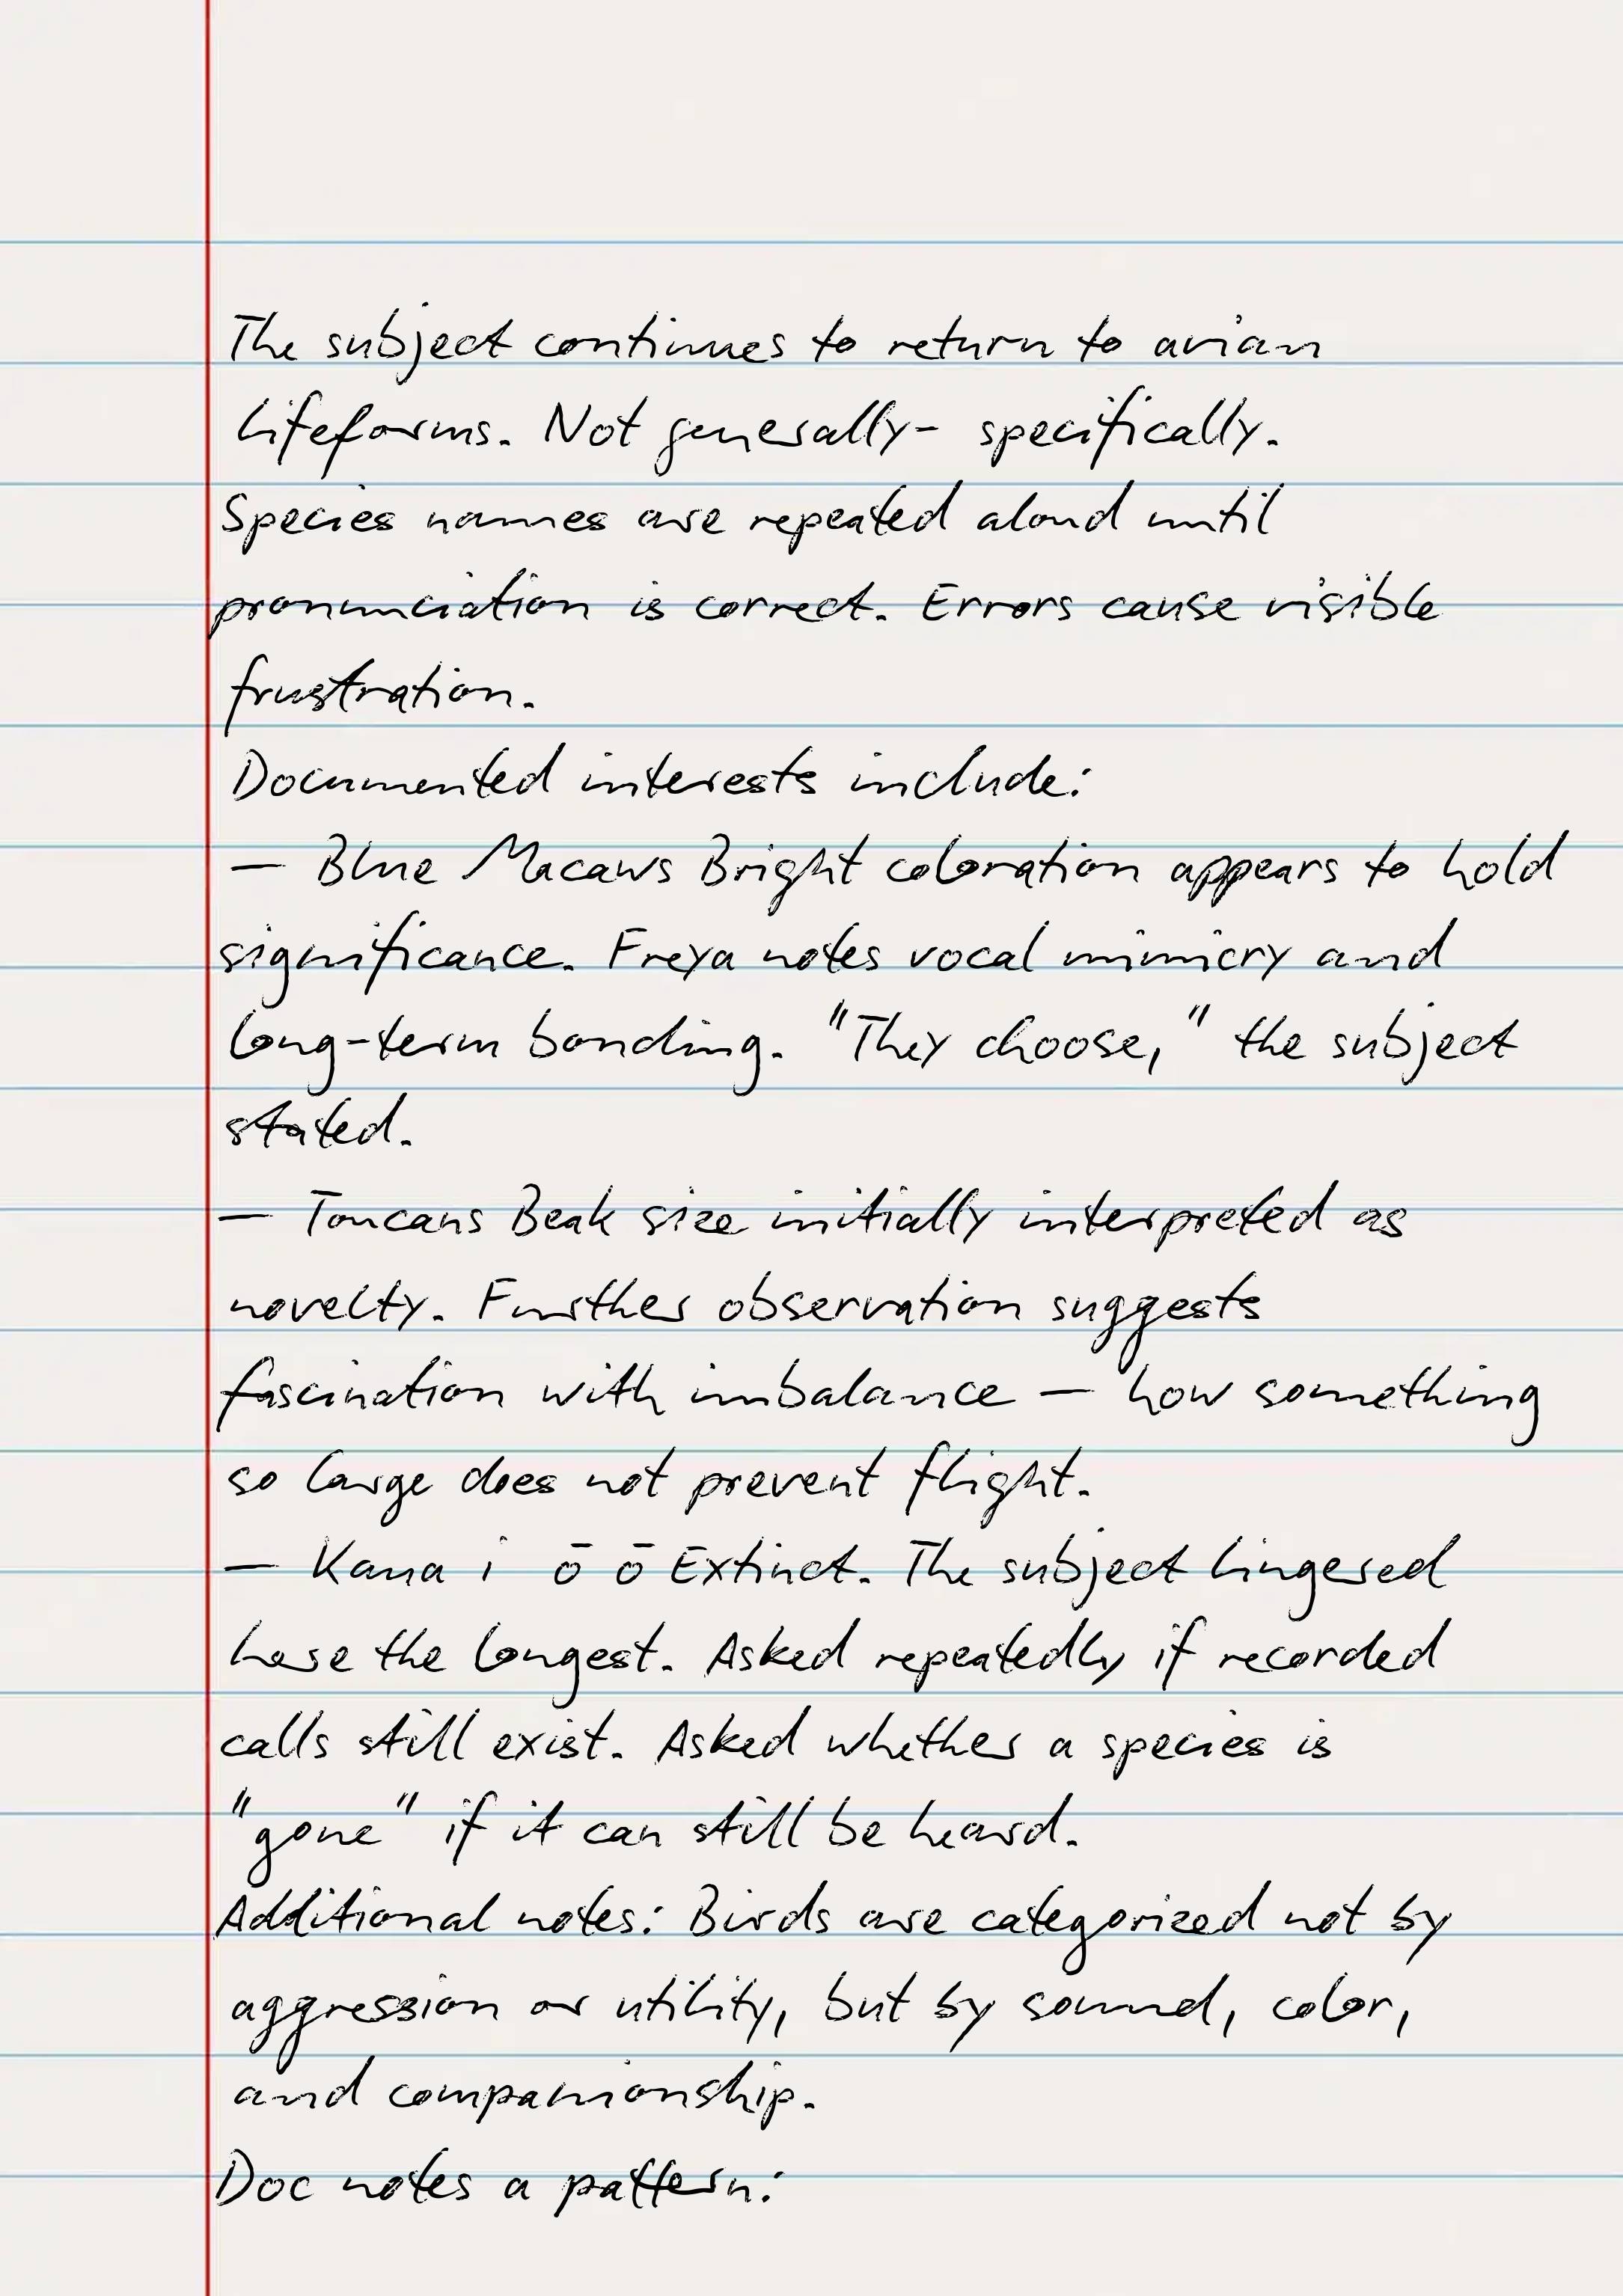 The subject continues to return to avian
lifeforms. Not generally- specifically.
Species names are repeated aloud until
pronunciation is correct. Errors cause visible
frustration.
Documented interests include:
— Blue Macaws Bright coloration appears to hold
significance. Freya notes vocal mimicry and
long-term bonding. "They choose," the subject
stated.
— Toucans Beak size initially interpreted as
novelty. Further observation suggests
fascination with imbalance — how something
so large does not prevent flight.
— Kaua i ō ō Extinct. The subject lingered
here the longest. Asked repeatedly if recorded
calls still exist. Asked whether a species is
"gone" if it can still be heard.
Additional notes: Birds are categorized not by
aggression or utility, but by sound, color,
and companionship.
Doc notes a pattern: